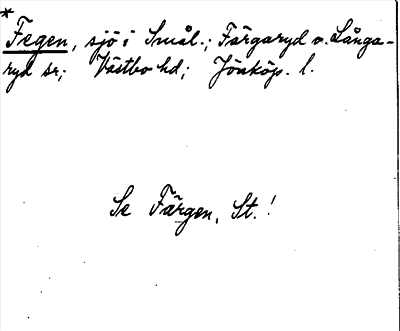 *
Fegen, sjö i Smål.; Färgaryd o. Långa-
ryd sr; Västbo hd; Jönköp. l.
Se Färgen, St.!